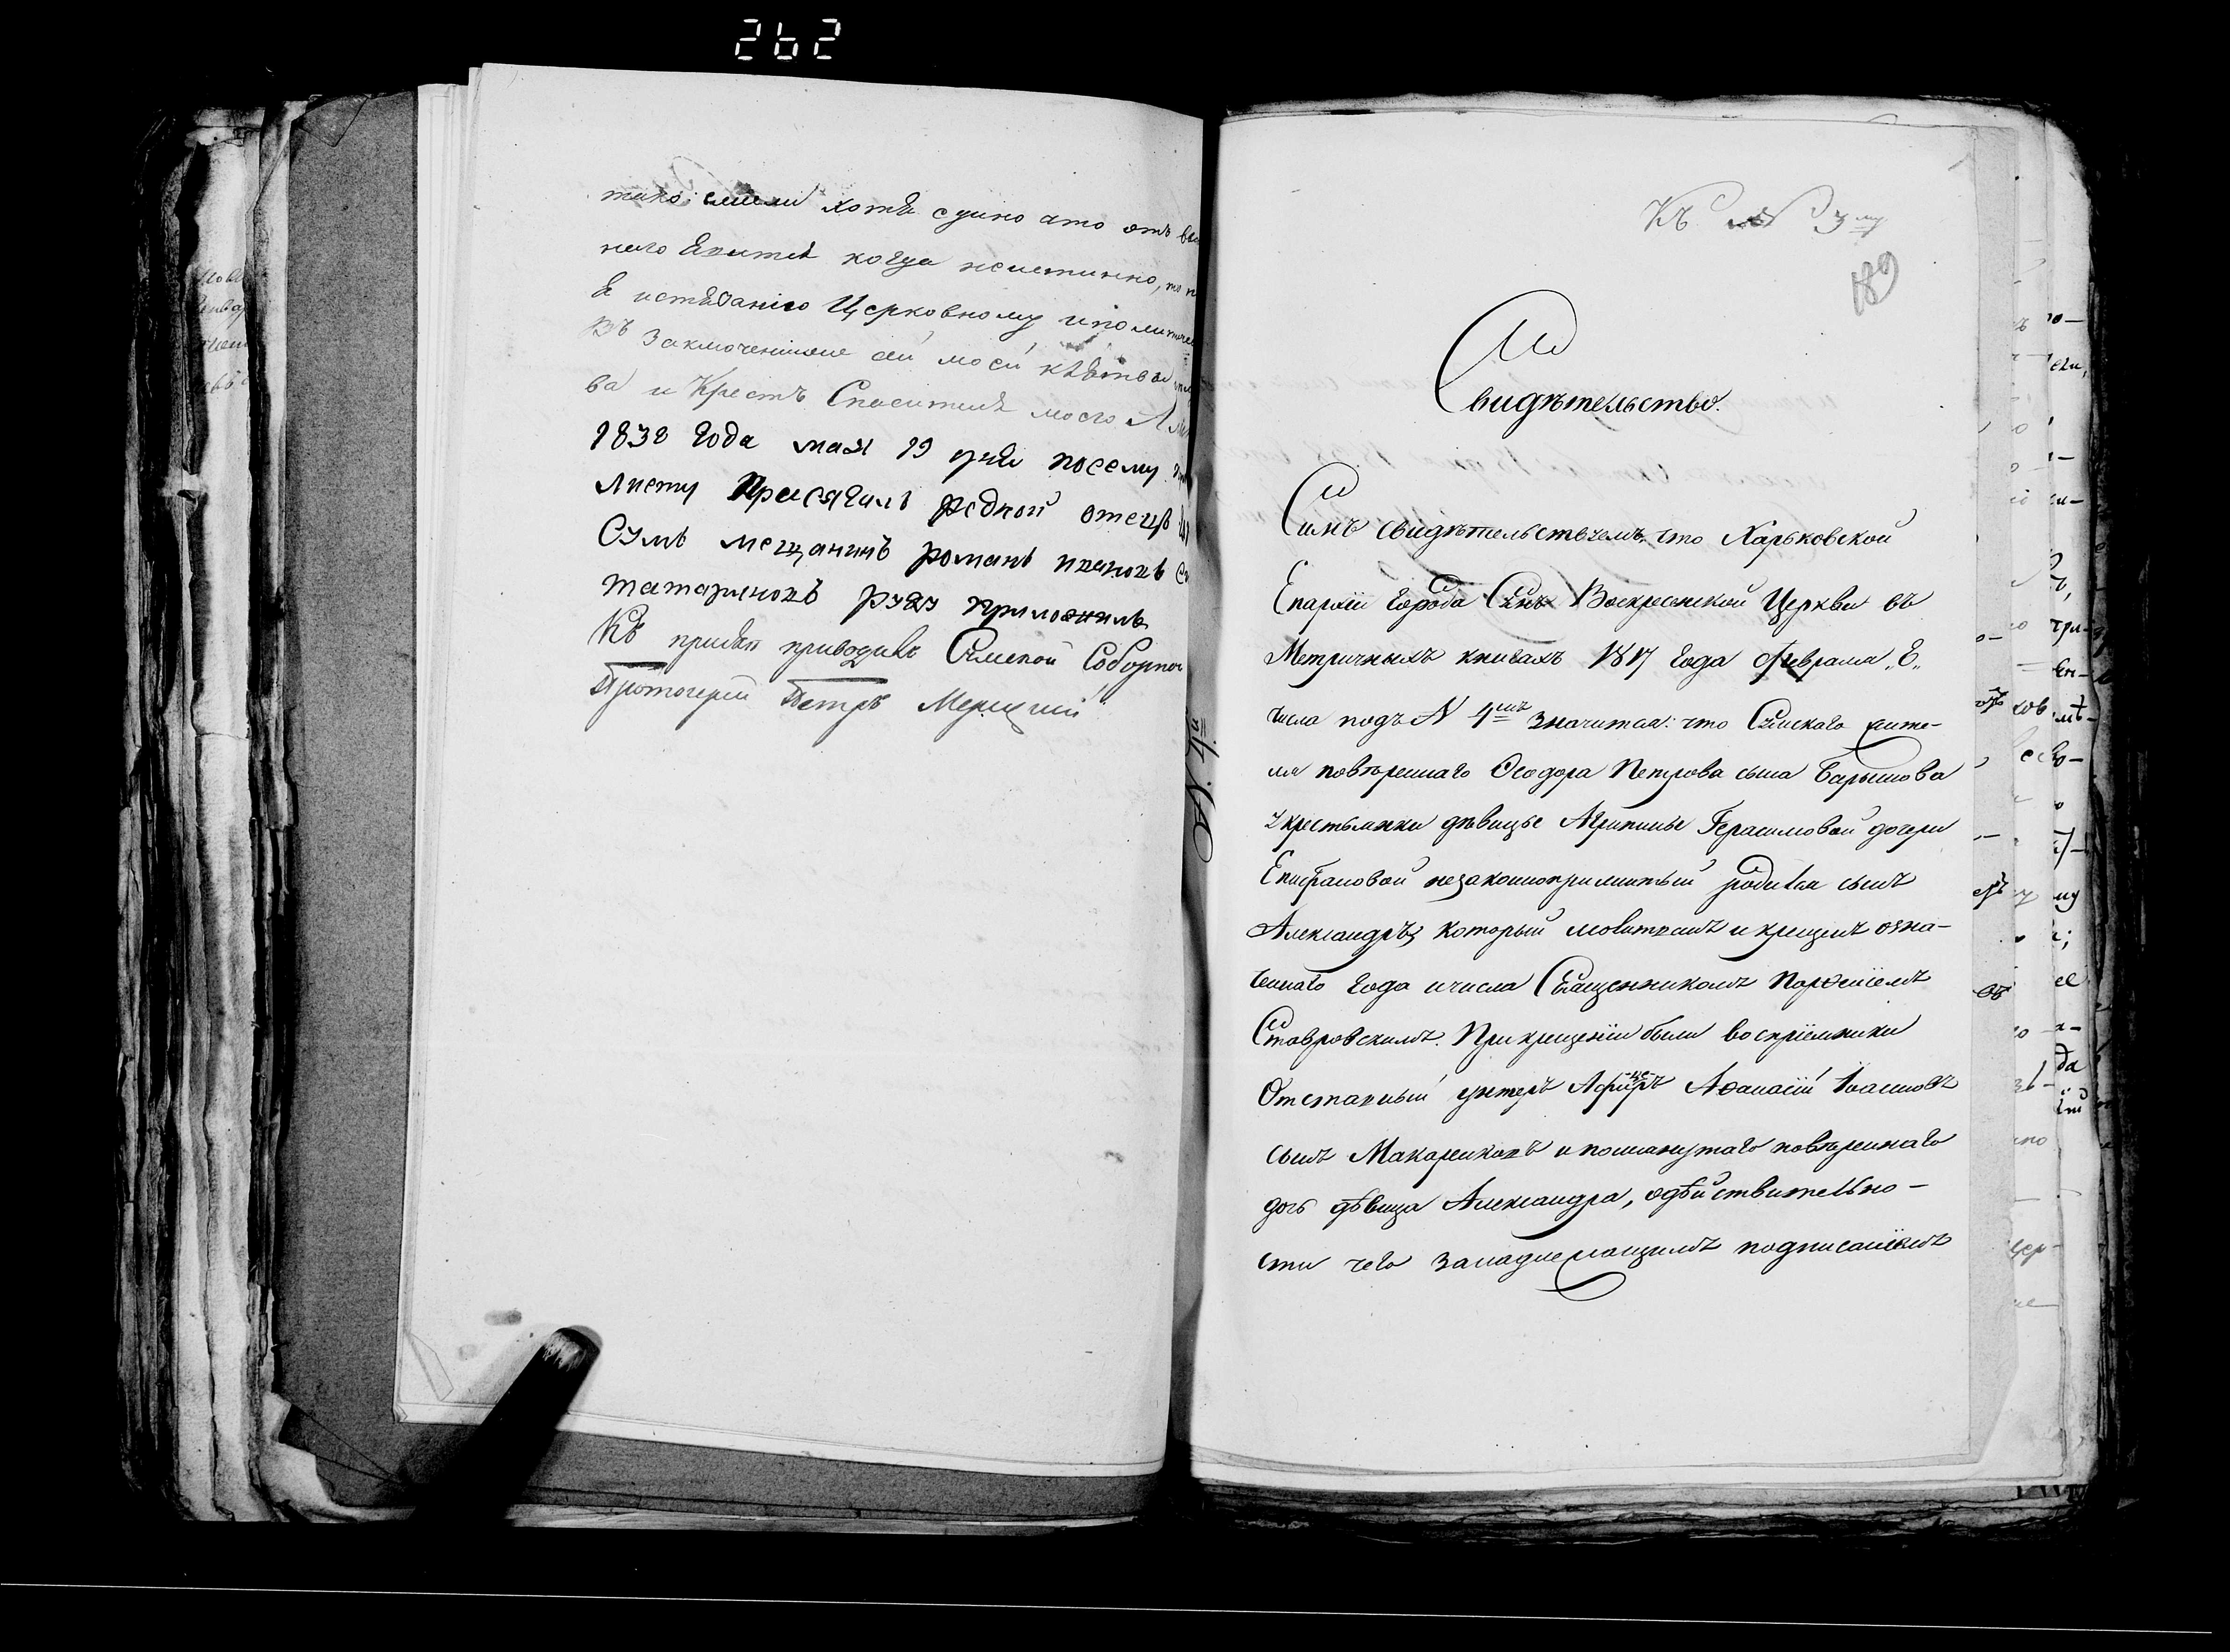 262
тико: смели хотя едино ато отъ
него явится когда неистинно, то
я истязанію Церковному и политичес
въ заключеніише ей моей клятвы
ва и Крестъ Спасителя моего
1832 года мая 19 дня посему
листу присягалъ родной отецъ
Сумъ мещанинъ романъ ивановъ
татариновъ руку приложилъ
Къ присягѣ приводилъ Сумской Соборной
Протоіерей Петръ
Къ № 3му
189
Свидѣтельство.
Симъ свидѣтельствуемъ, что Харьковской
Епархіи города Сумъ Воскресенской Церкви въ
Метричныхъ книгахъ 1817 года февраля „6„
числа подъ № 4мъ значится: что Сумскаго жите-
ля повѣреннаго Ѳеодора Петрова сына Барышова
у крестьянки дѣвицы Агрипины Герасимовой дочери
Епифановой незаконноприжитый родился сынъ
Александръ, который молитвенъ и крещенъ озна-
ченнаго года и числа Священникомъ Парѳеніемъ
Ставровскимъ. При крещеніи были воспріемники
Отставный унтеръ Афицеръ Аѳанасій Іоанновъ
сынъ Макаренковъ и помянутаго повѣреннаго
дочь дѣвица Александра, о дѣйствительно-
сти чего за надлежащимъ подписаніемъ
№ 4й